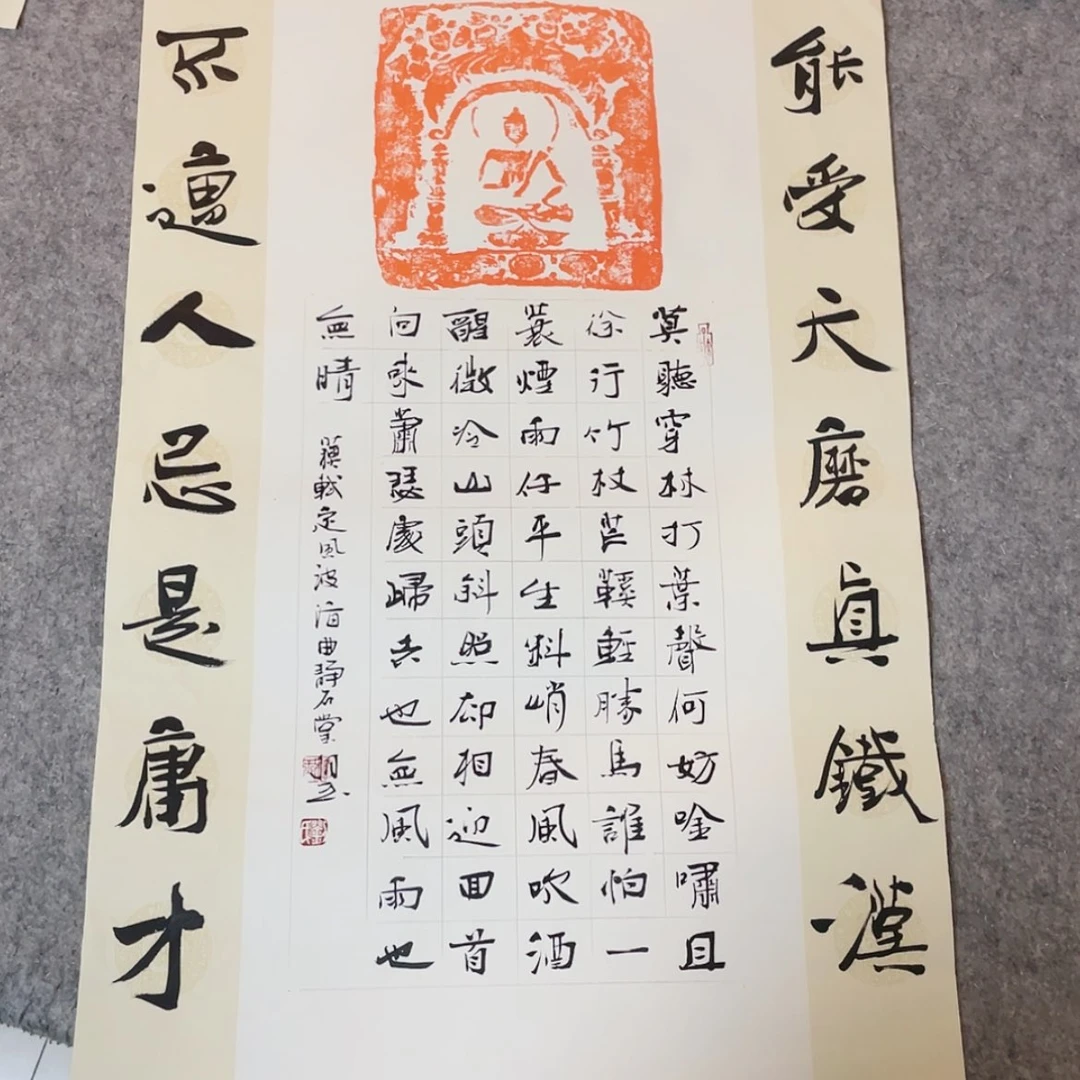 能受天磨真鐵漢
莫聽穿林打葉聲何妨唫嘯且
徐行竹杖芒鞵輕勝馬誰怕一
蓑煙雨任平生料峭春風吹酒
醒微冷山頭斜照却相迎回首
向來蕭瑟處歸去也無風雨也
無晴
蘇軾定風波 曲靜石堂
不遭人忌是庸才